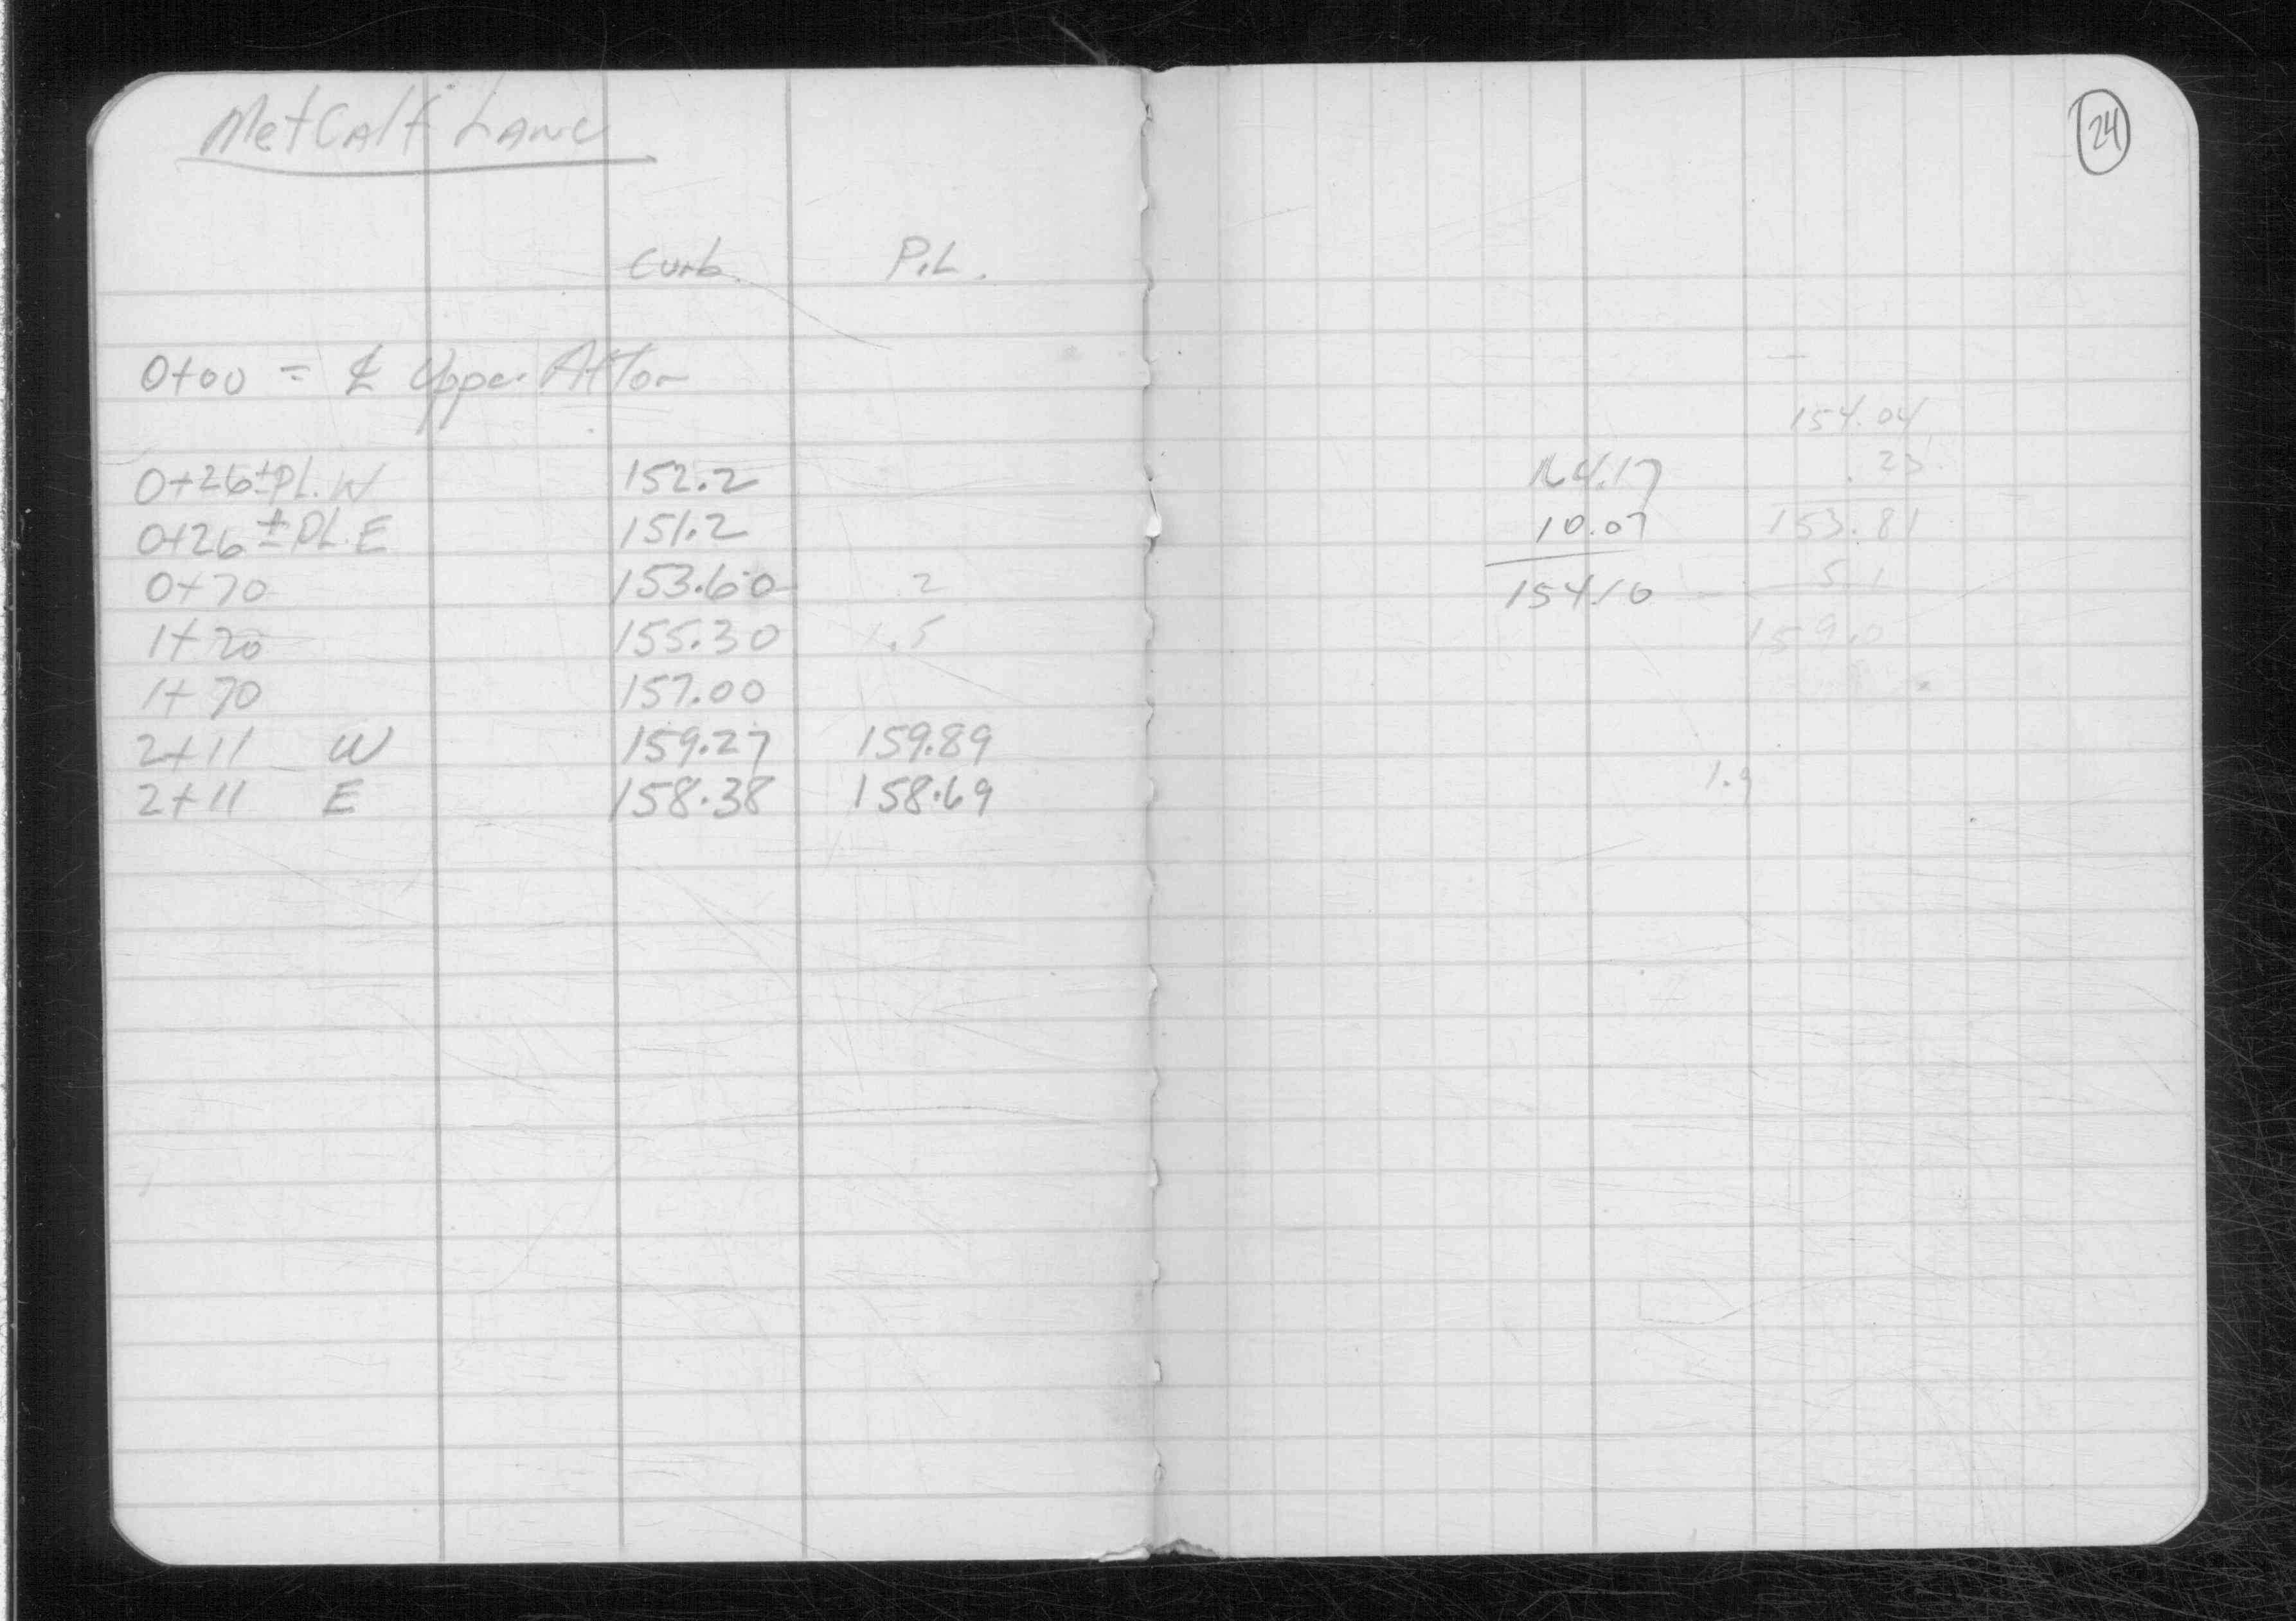 MetCalf Lane
Curb. P.L.
0+00 = ℄ Upper Afton
0+26± PL. W 152.2
0+26± PL. E 151.2
0+70 153.60 .2
1+20 155.30 1.5
1+70 157.00
2+11 W 159.27 159.89
2+11 E 158.38 158.69
24
154.04
.23
153.81
5.1
159.0
164.17
10.07
154.10
1.9